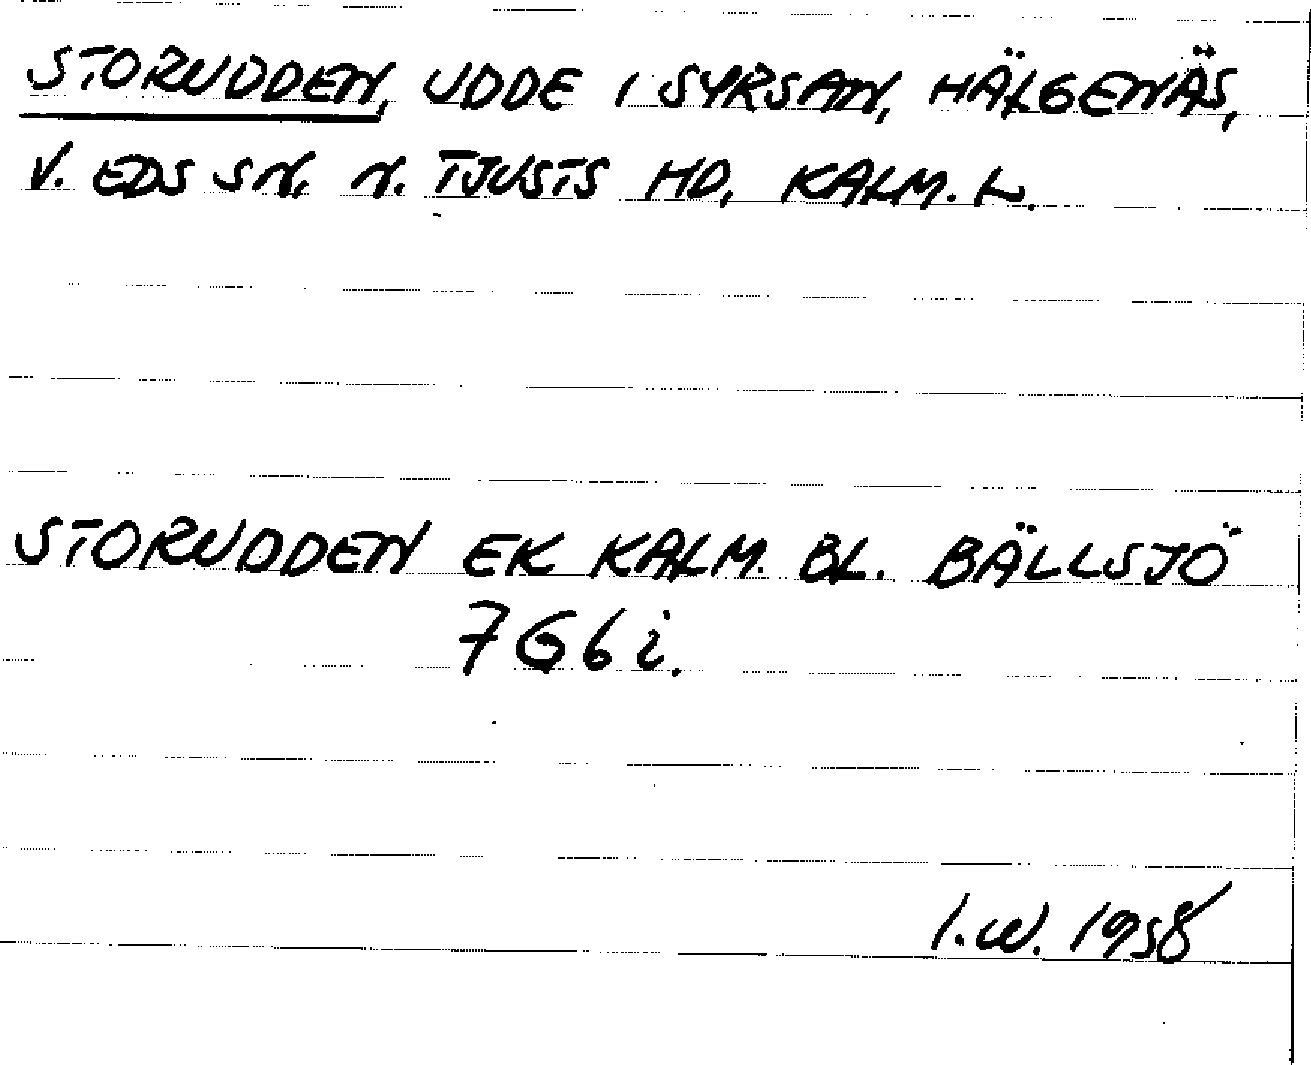 STORUDDEN, UDDE I SYRSAN, HÄLGENÄS,
V. EDS SN. N. TJUSTS HD, KALM. L.
STORUDDEN EK KALM. BL. BÄLLSJÖ
7G6i.
I.W. 1958